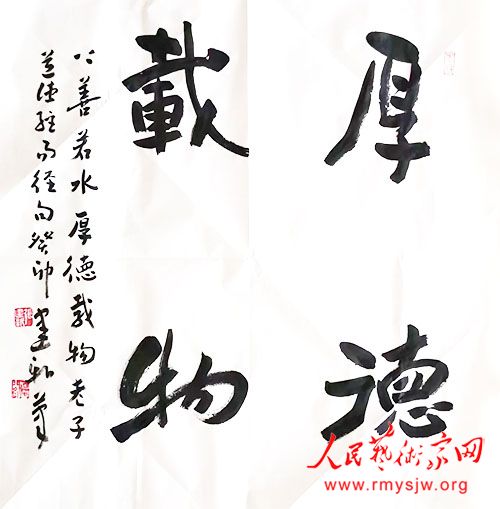 厚德
載物
上善若水厚德載物老子
道德經句癸卯
人民藝術家网
www.rmysjw.org